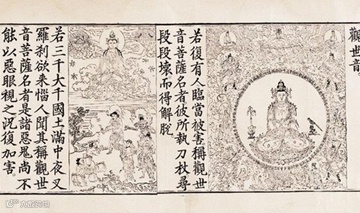 觀世音
若復有人臨當被害稱觀世
音菩薩名者彼所執刀杖尋
段段壞而得解脫
若三千大千國土滿中夜叉
羅刹欲來惱人聞其稱觀世
音菩薩名者是諸惡鬼尚不
能以惡眼視之況復加害